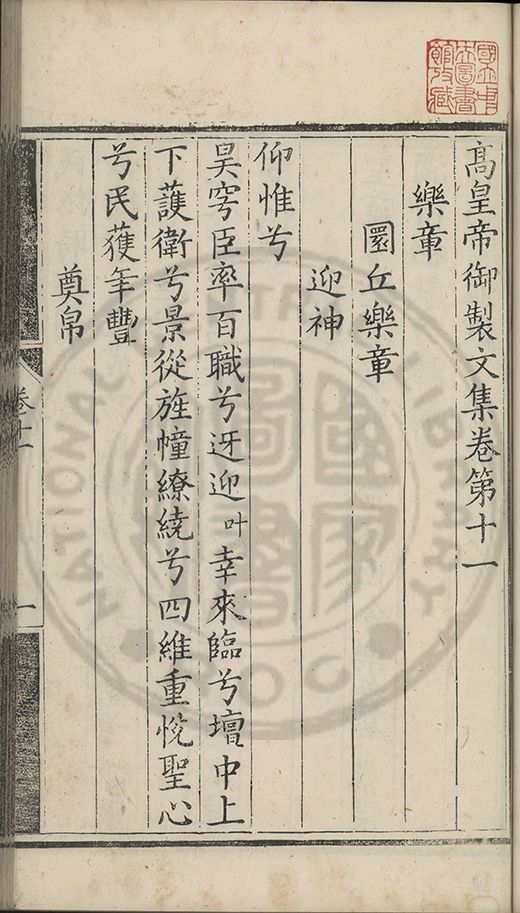 高皇帝御製文集卷第十一
樂章
圜丘樂章
迎神
仰惟兮
昊穹臣率百職兮迓迎叶幸來臨兮壇中上
下護衛兮景從旌幢繚繞兮四維重悅聖心
兮民獲年豐
奠帛
卷十一
一
國立中
央圖書
館收藏